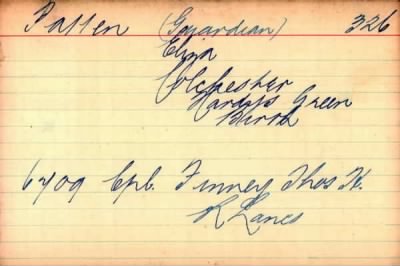 Patten (Guardian) 326
Eliza
Colchester
Hardy's Green
Birch
6709 Cpl. Finney Thos H.
R Lancs